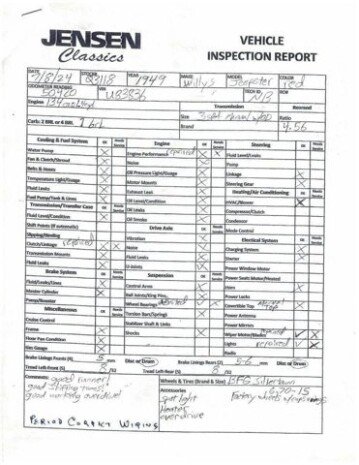 JENSEN
Classics
VEHICLE
INSPECTION REPORT
DATE 7/8/24 STOCK# YEAR 1949 MAKE Willys MODEL Jeepster COLOR red
ODOMETER READING 50920 VIN TECH ID. RO#
Engine Transmission Rearend
Size 3 spd manual w/OD Ratio
Carb: 2 BRL or 4 BRL 1 brl Brand 4.56
Cooling & Fuel System OK Needs Service
Water Pump
Fan & Clutch/Shroud
Belts & Hoses
Temperature Light/Gauge
Fluid Leaks
Fuel Pump/Tank & Lines
Transmission/Transfer Case OK Needs Service
Fluid Level/Condition
Shift Points (if automatic)
Slipping/Binding
Clutch/Linkage (replaced)
Transmission Mounts
Fluid Leaks
Brake System OK Needs Service
Fluid/Leaks/Lines
Master Cylinder
Power/Booster
Miscellaneous OK Needs Service
Cruise Control
Frame
Floor Pan Condition
Gas Gauge
Engine OK Needs Service
Engine Performance
Noise
Oil Pressure Light/Gauge
Motor Mounts
Exhaust Leak
Oil Level/Condition
Oil Leaks
Oil Smoke
Drive Axle OK Needs Service
Vibration
Noise
Fluid Leaks
U-Joints
Suspension OK Needs Service
Control Arms
Ball Joints/King Pins
Wheel Bearings
Torsion Bars/Springs
Stabilizer Shaft & Links
Shocks
Steering OK Needs Service
Fluid Level/Leaks
Pump
Linkage
Steering Gear
Heating/Air Conditioning OK Needs Service
HVAC/Blower
Compressor/Clutch
Condensor
Mode Control
Electical System OK Needs Service
Charging System
Starter
Power Window Motor
Power Seats Motor/Heated
Horn
Power Locks
Convertible Top manual top
Power Antenna
Power Mirrors
Wiper Motor/Blades
Lights
Radio
Brake Linings Fronts (%) 5 mm Disc or Drum Brake Linings Rears (%) 5-6 mm Disc or Drum
Tread Left-Front (S) 8 /32 Tread Left-Rear (S) 8 /32
Comments: good runner!
good shifting trans!
good working overdrive!
PERIOD CORRECT WIRING
Wheels & Tires (Brand & Size) BFG Silvertown
6.70-15
Accessories Factory wheels w/ trim rings
spot light
Heater
overdrive